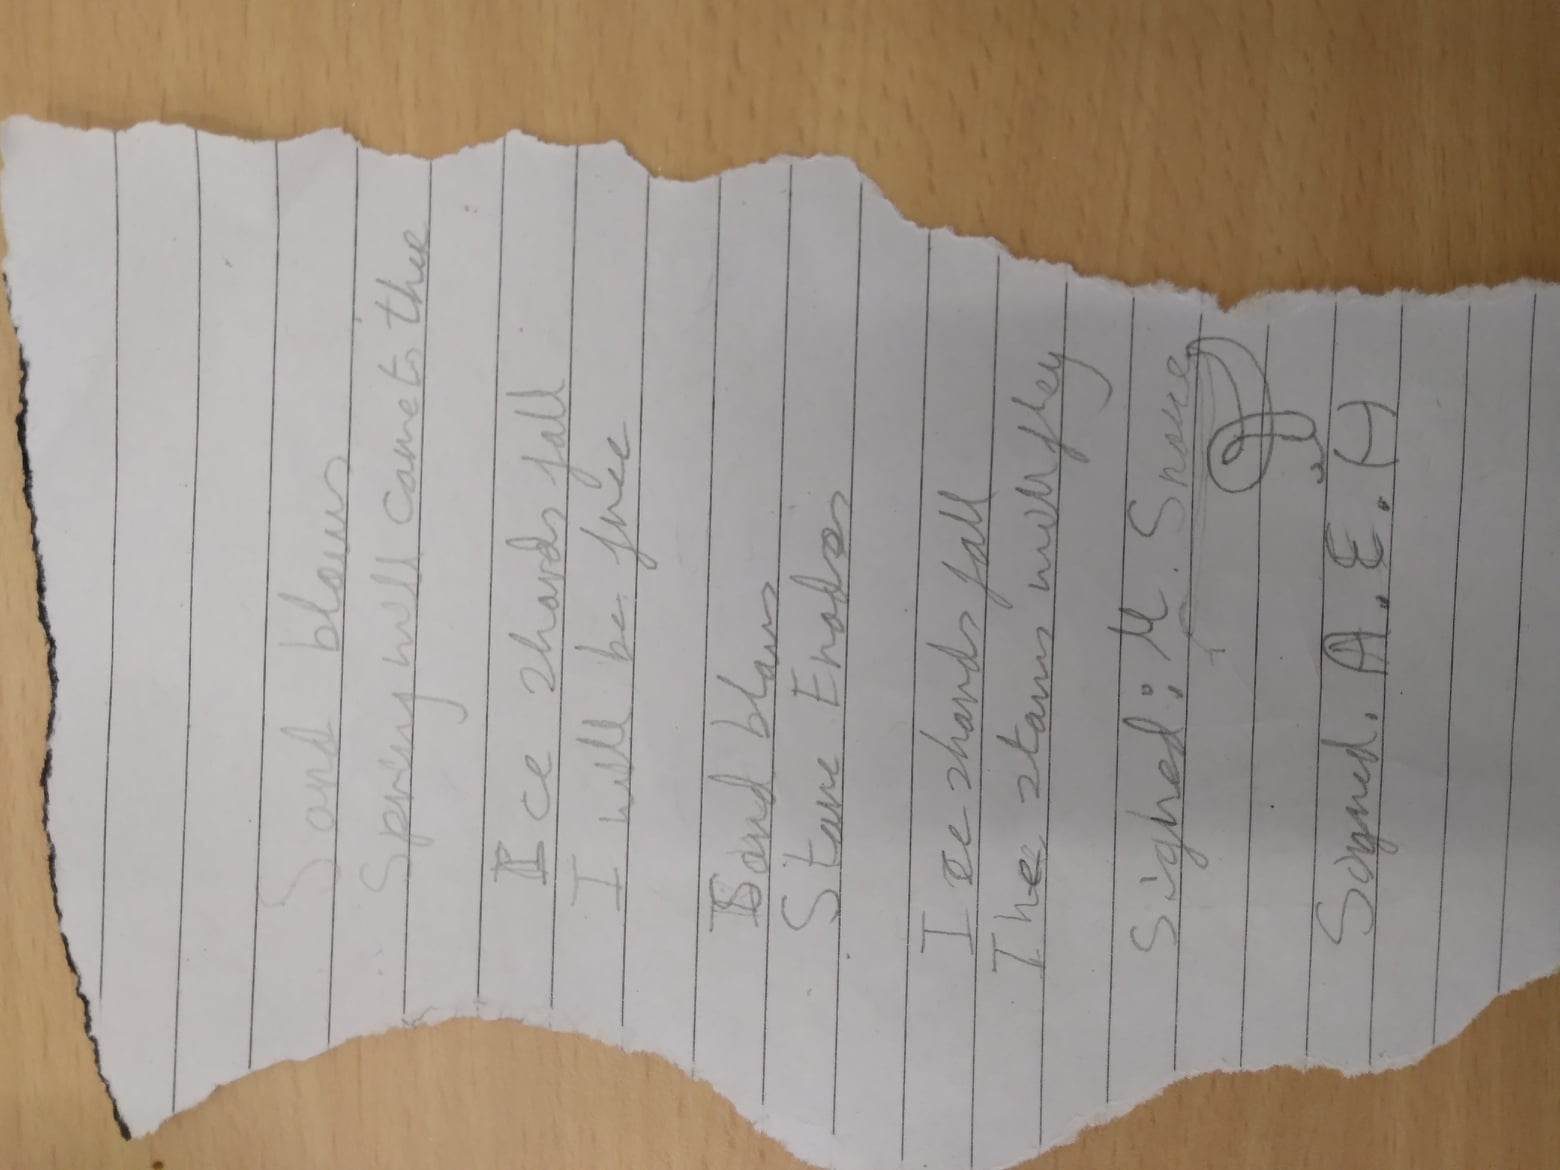 Sand blows
Spring will come to thee
Ice shards fall
I will be free
Sand blows
Stone Erodes
Ice shards fall
The stars will fley
Signed: M. Snow
Signed. A. E. H